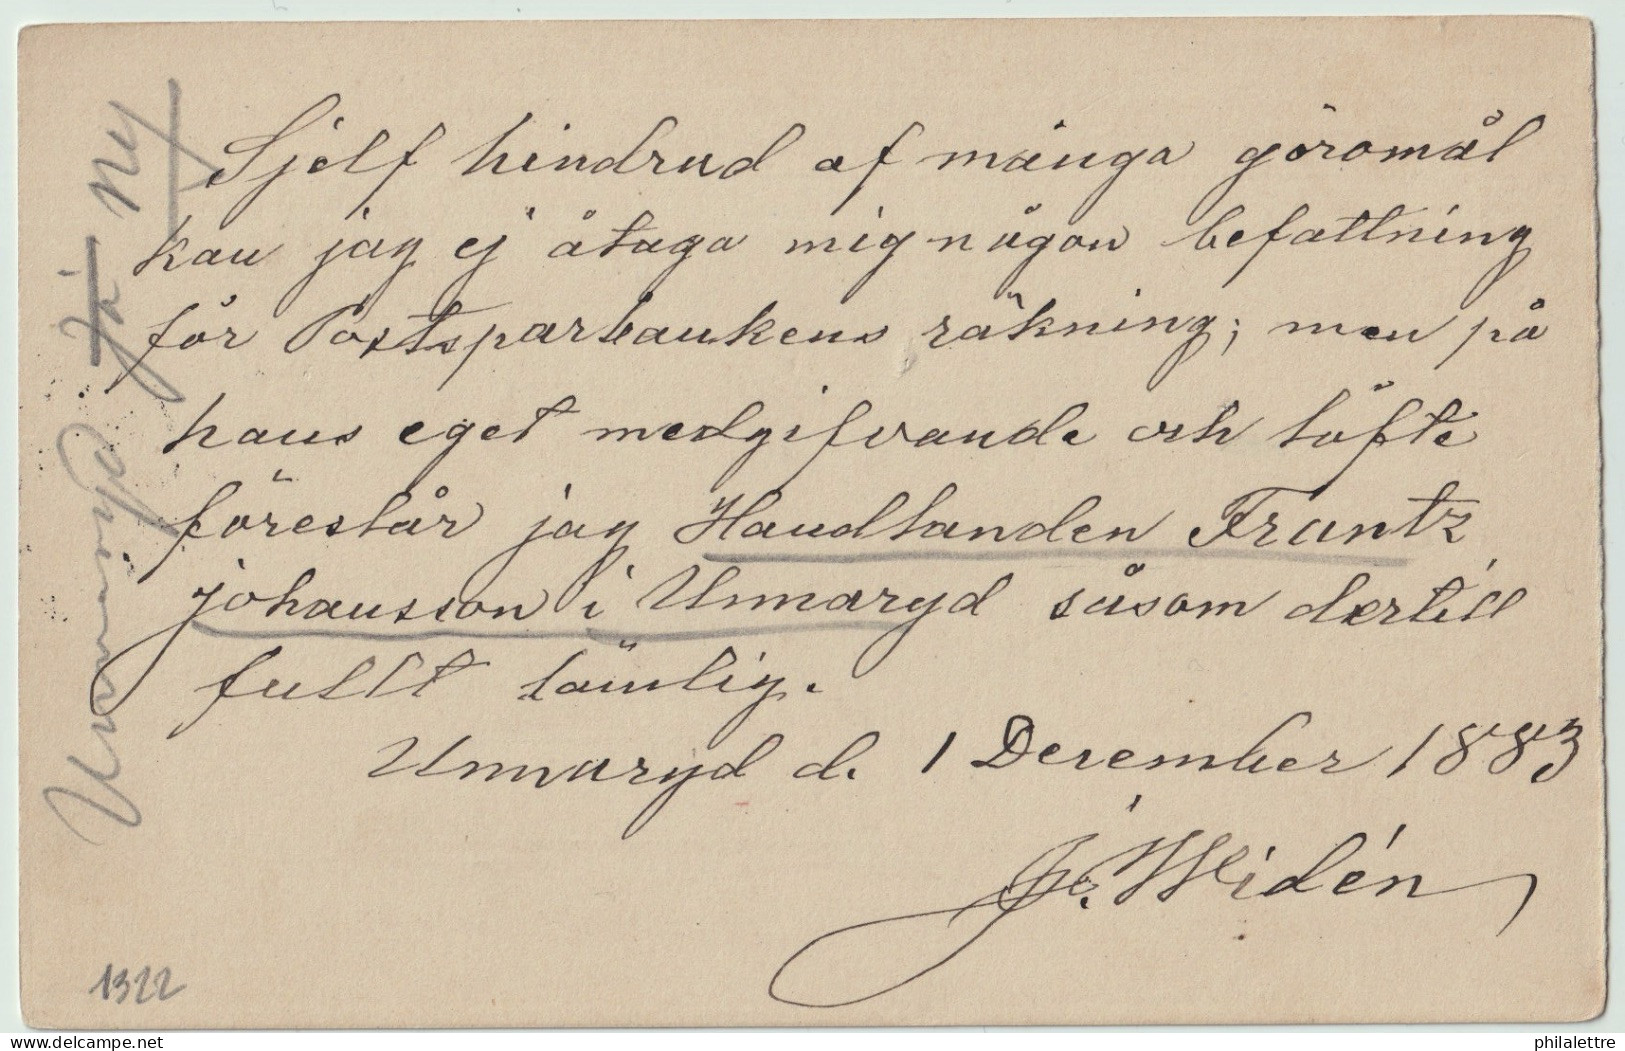 Sjelf hindrad af många göromål
kan jag ej åtaga mig någon befattning
för Postsparbankens räkning; men på
hans eget medgifvande och löfte
föreslår jag Handlanden Frantz
johansson i Unnaryd såsom dertill
fullt lämlig.
Unnaryd d. 1 December 1883
Widén
Unnaryd Ja Ny
1322
www.delcampe.net
philalettre